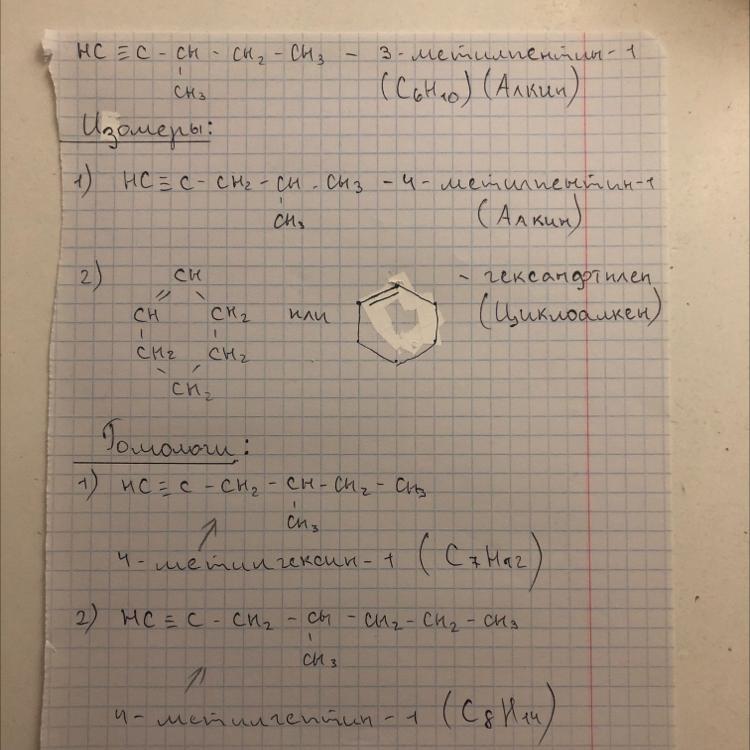 HC ≡ C - CH - CH₂ - CH₃ - 3-метилпентин-1
CH₃ (C₆H₁₀) (Алкин)
Изомеры:
1) HC ≡ C - CH₂ - CH - CH₃ - 4-метилпентин-1
CH₃ (Алкин)
2) CH - гександтилен
CH CH₂ или (Циклоалкен)
CH₂ CH₂
CH₂
Гомологи:
1) HC ≡ C - CH₂ - CH - CH₂ - CH₃
CH₃
4-метилгексин-1 (C₇H₁₂)
2) HC ≡ C - CH₂ - CH - CH₂ - CH₂ - CH₃
CH₃
4-метилгептин-1 (C₈H₁₄)